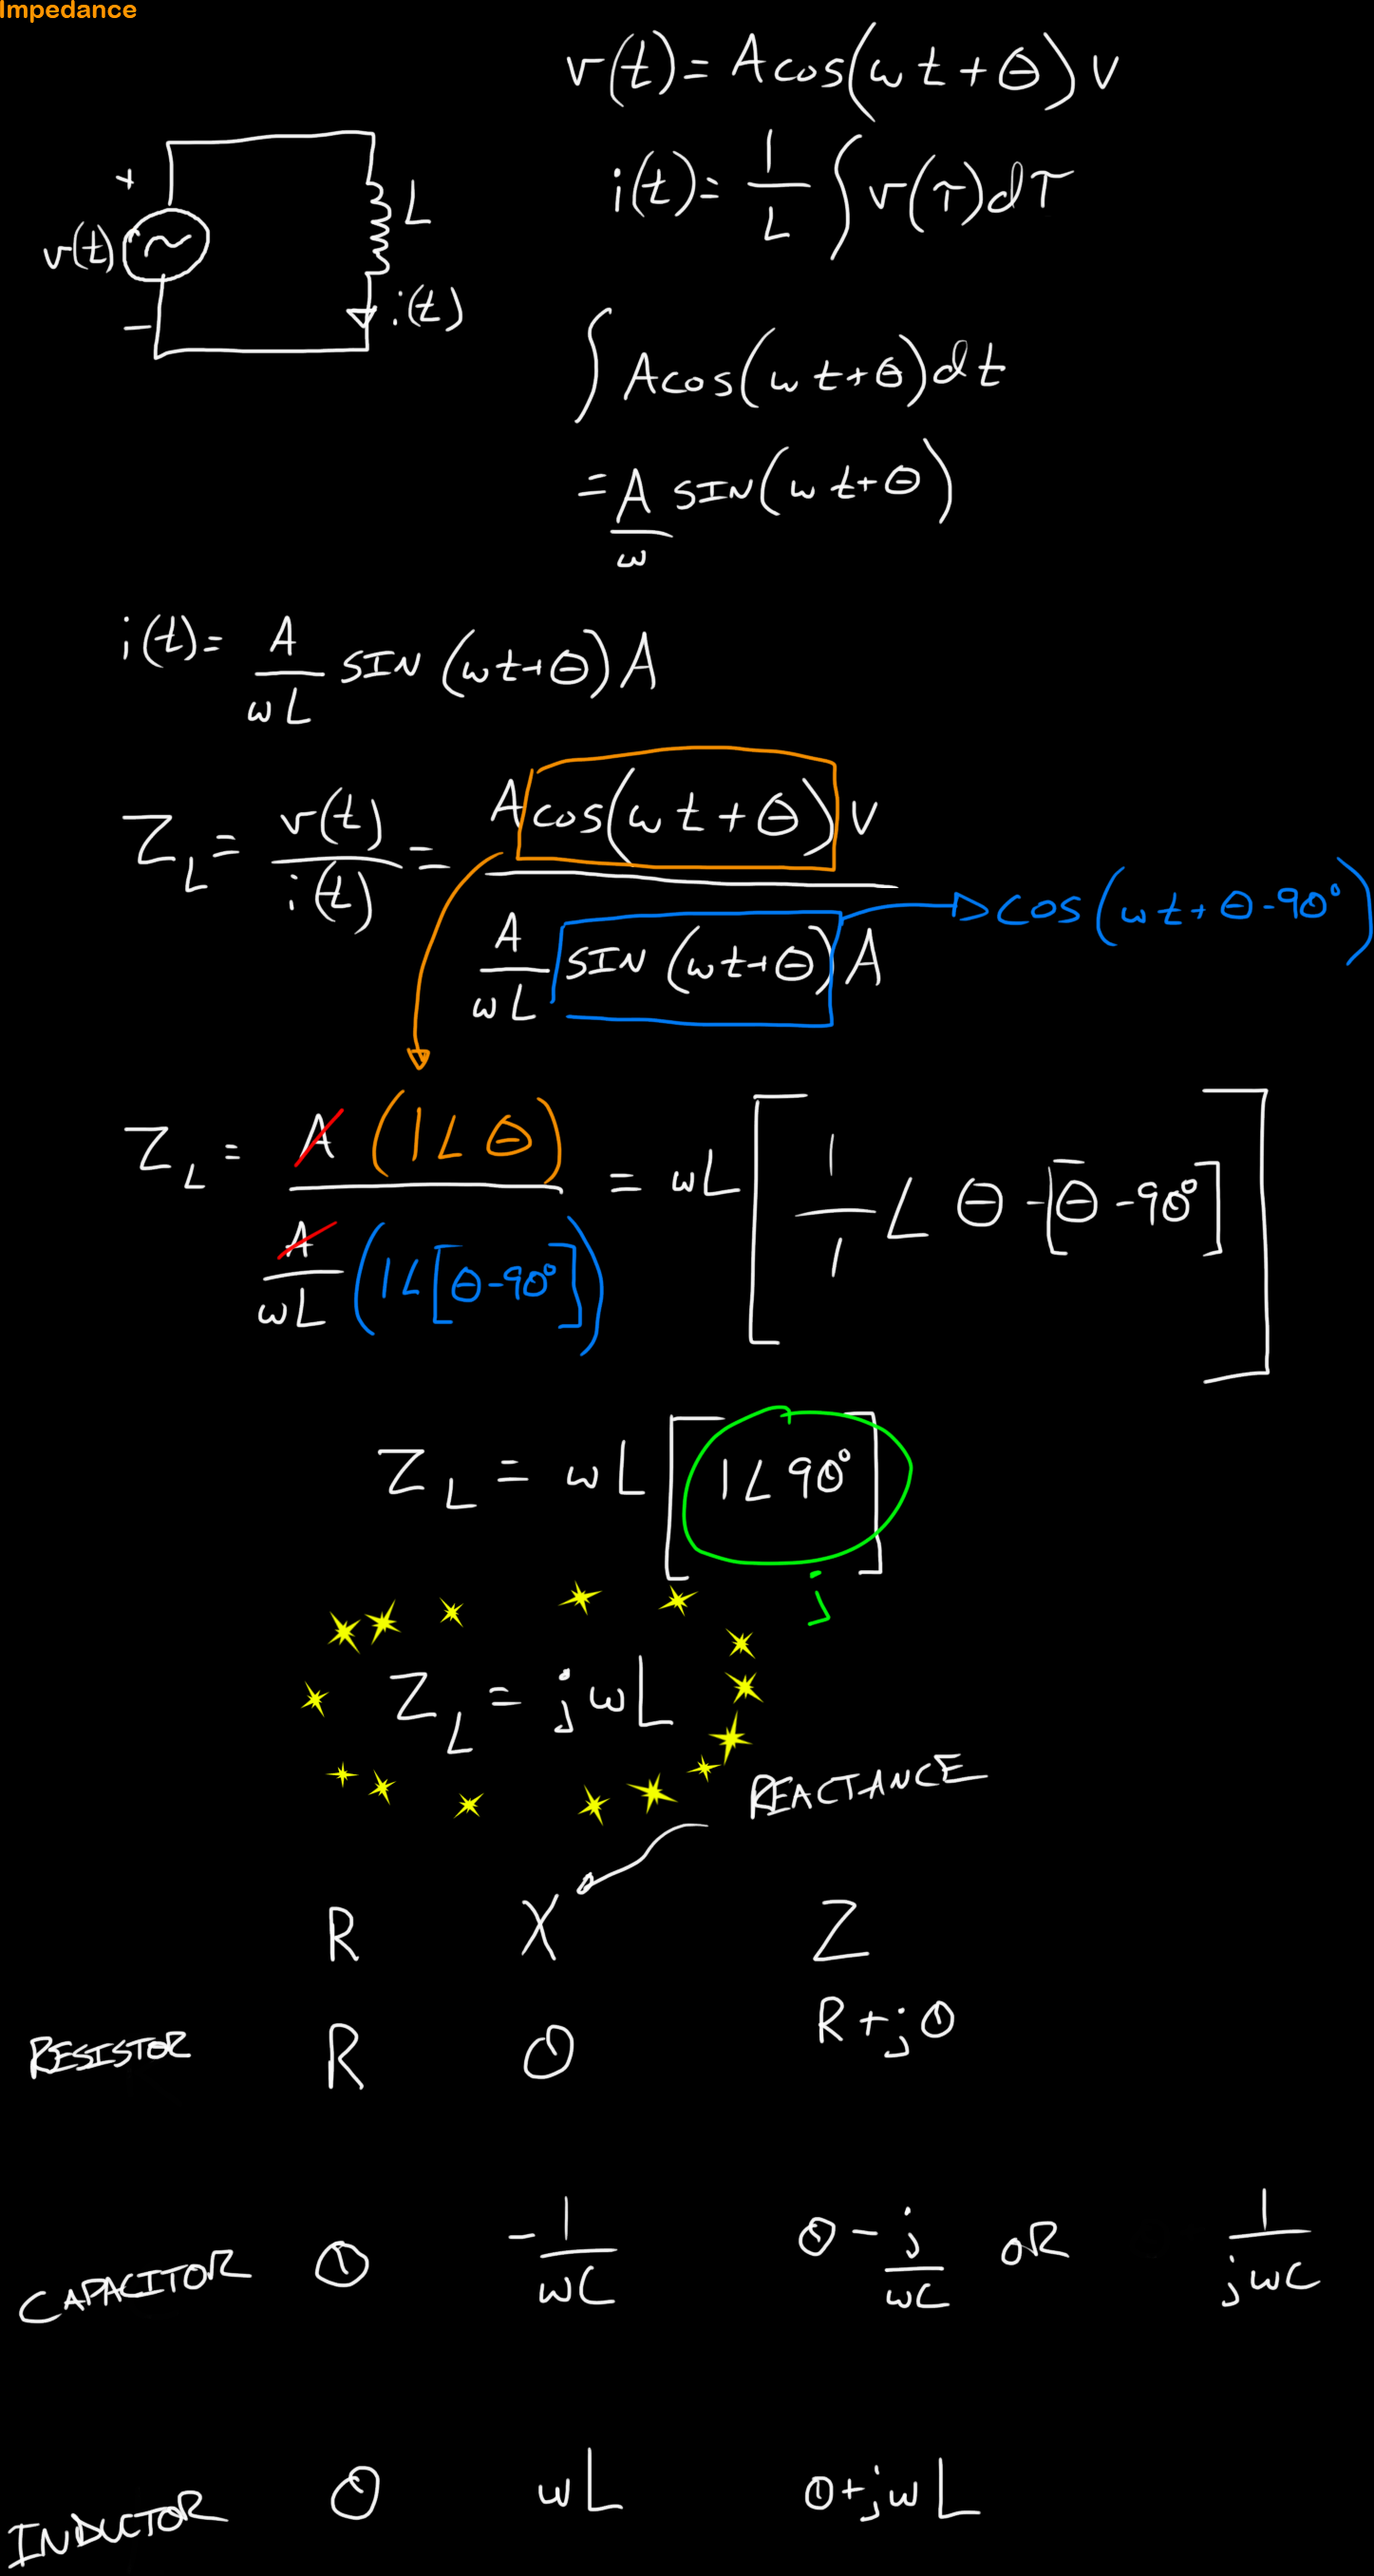 Impedance
v(t) = A cos(ωt + θ) V
i(t) = 1/L ∫ v(τ)dτ
+
v(t)
L
i(t)
−
∫ A cos(ωt+θ)dt
= A/ω SIN(ωt+θ)
i(t) = A/ωL SIN (ωt+θ) A
Z_L = v(t)/i(t) = A cos(ωt + θ) V / A/ωL SIN (ωt+θ) A
cos(ωt+θ-90°)
Z_L = A (1∠θ) / A/ωL (1∠[θ-90°]) = ωL [1/1 ∠ θ -[θ -90°]]
Z_L = ωL [1∠90°]
j
Z_L = jωL
REACTANCE
R X Z
RESISTOR R 0 R+j0
CAPACITOR 0 -1/ωC 0 - j/ωC OR 1/jωC
INDUCTOR 0 ωL 0+jωL